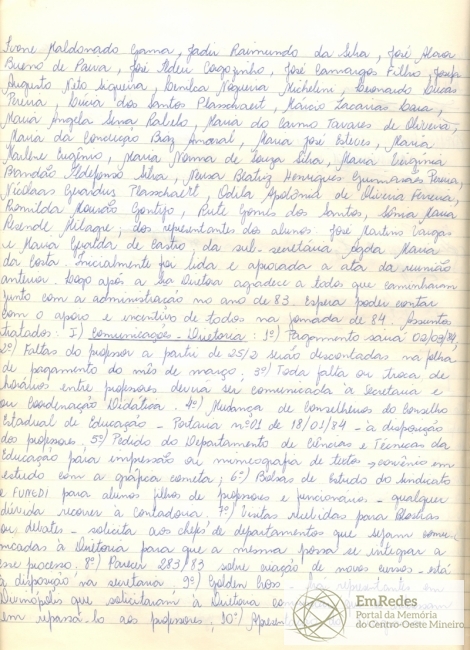 Ivone Maldonado Gama, Jadir Raimundo da Silva, José Alava
Bueno de Paiva, José Cagozinho, José Camargos Filho, Josefa
Augusto Neto Siqueira, Nogueira Michelini, Leonardo Lucas
Pereira, Lúcia dos Santos Plasschaert, Márcio Zacarias Lara,
Maria Ângela Sena Rabelo, Maria do Carmo Tavares de Oliveira,
Maria da Conceição Braz Amaral, Maria José Esteves, Maria
Marlene Eugênio, Maria Norma de Souza Silva, Maria Virgínia
Brandão Ildefonso Silva, Neusa Beatriz Henriques Guimarães Pereira,
Nicolaas Gerardus Plasschaert, Odila Apolônia de Oliveira Pereira,
Romilda Mourão Gontijo, Rute Gomes dos Santos, Sônia Maria
Resende Milagre; dos representantes dos alunos: José Martins Vargas
e Maria Geralda de Castro da sub-secretária Magda Maria
da Costa. Inicialmente foi lida e aprovada a ata da reunião
anterior. Logo após a Sra Diretora agradece a todos que caminharam
junto com a administração no ano de 83. Espera poder contar
com o apoio e incentivo de todos na jornada de 84. Assuntos
tratados: I) Comunicações - Diretoria: 1º) Pagamento sairá 02/03/84
2º) Faltas do professor a partir de 25/2 serão descontadas na folha
de pagamento do mês de março; 3º) Toda falta ou troca de
horários entre professores deverá ser comunicada à Secretaria e
ou Coordenação Didática. 4º) Mudança de Conselheiros do Conselho
Estadual de Educação - Portaria nº 01 de 18/01/84 - à disposição
dos professores. 5º) Pedido do Departamento de Ciências e Técnicas da
Educação para impressão ou mimeografia de textos - convênio em
estudo com a gráfica cometa; 6º) Bolsas de Estudo do Sindicato
e FUNEDI para alunos filhos de professores e funcionários - qualquer
dúvida recorrer à contadoria. 7º) Visitas recebidas para Palestras
ou debates - solicita aos chefes de departamentos que sejam comuni-
cadas à Diretoria para que a mesma possa se integrar a
esse processo. 8º) Parecer 283/83 sobre criação de novos cursos - está
à disposição na secretaria. 9º) Golden Cross - representante em
Divinópolis que solicitaram à Diretora
em repassá-lo aos professores; 10º)
EmRedes
Portal da Memória
do Centro-Oeste Mineiro